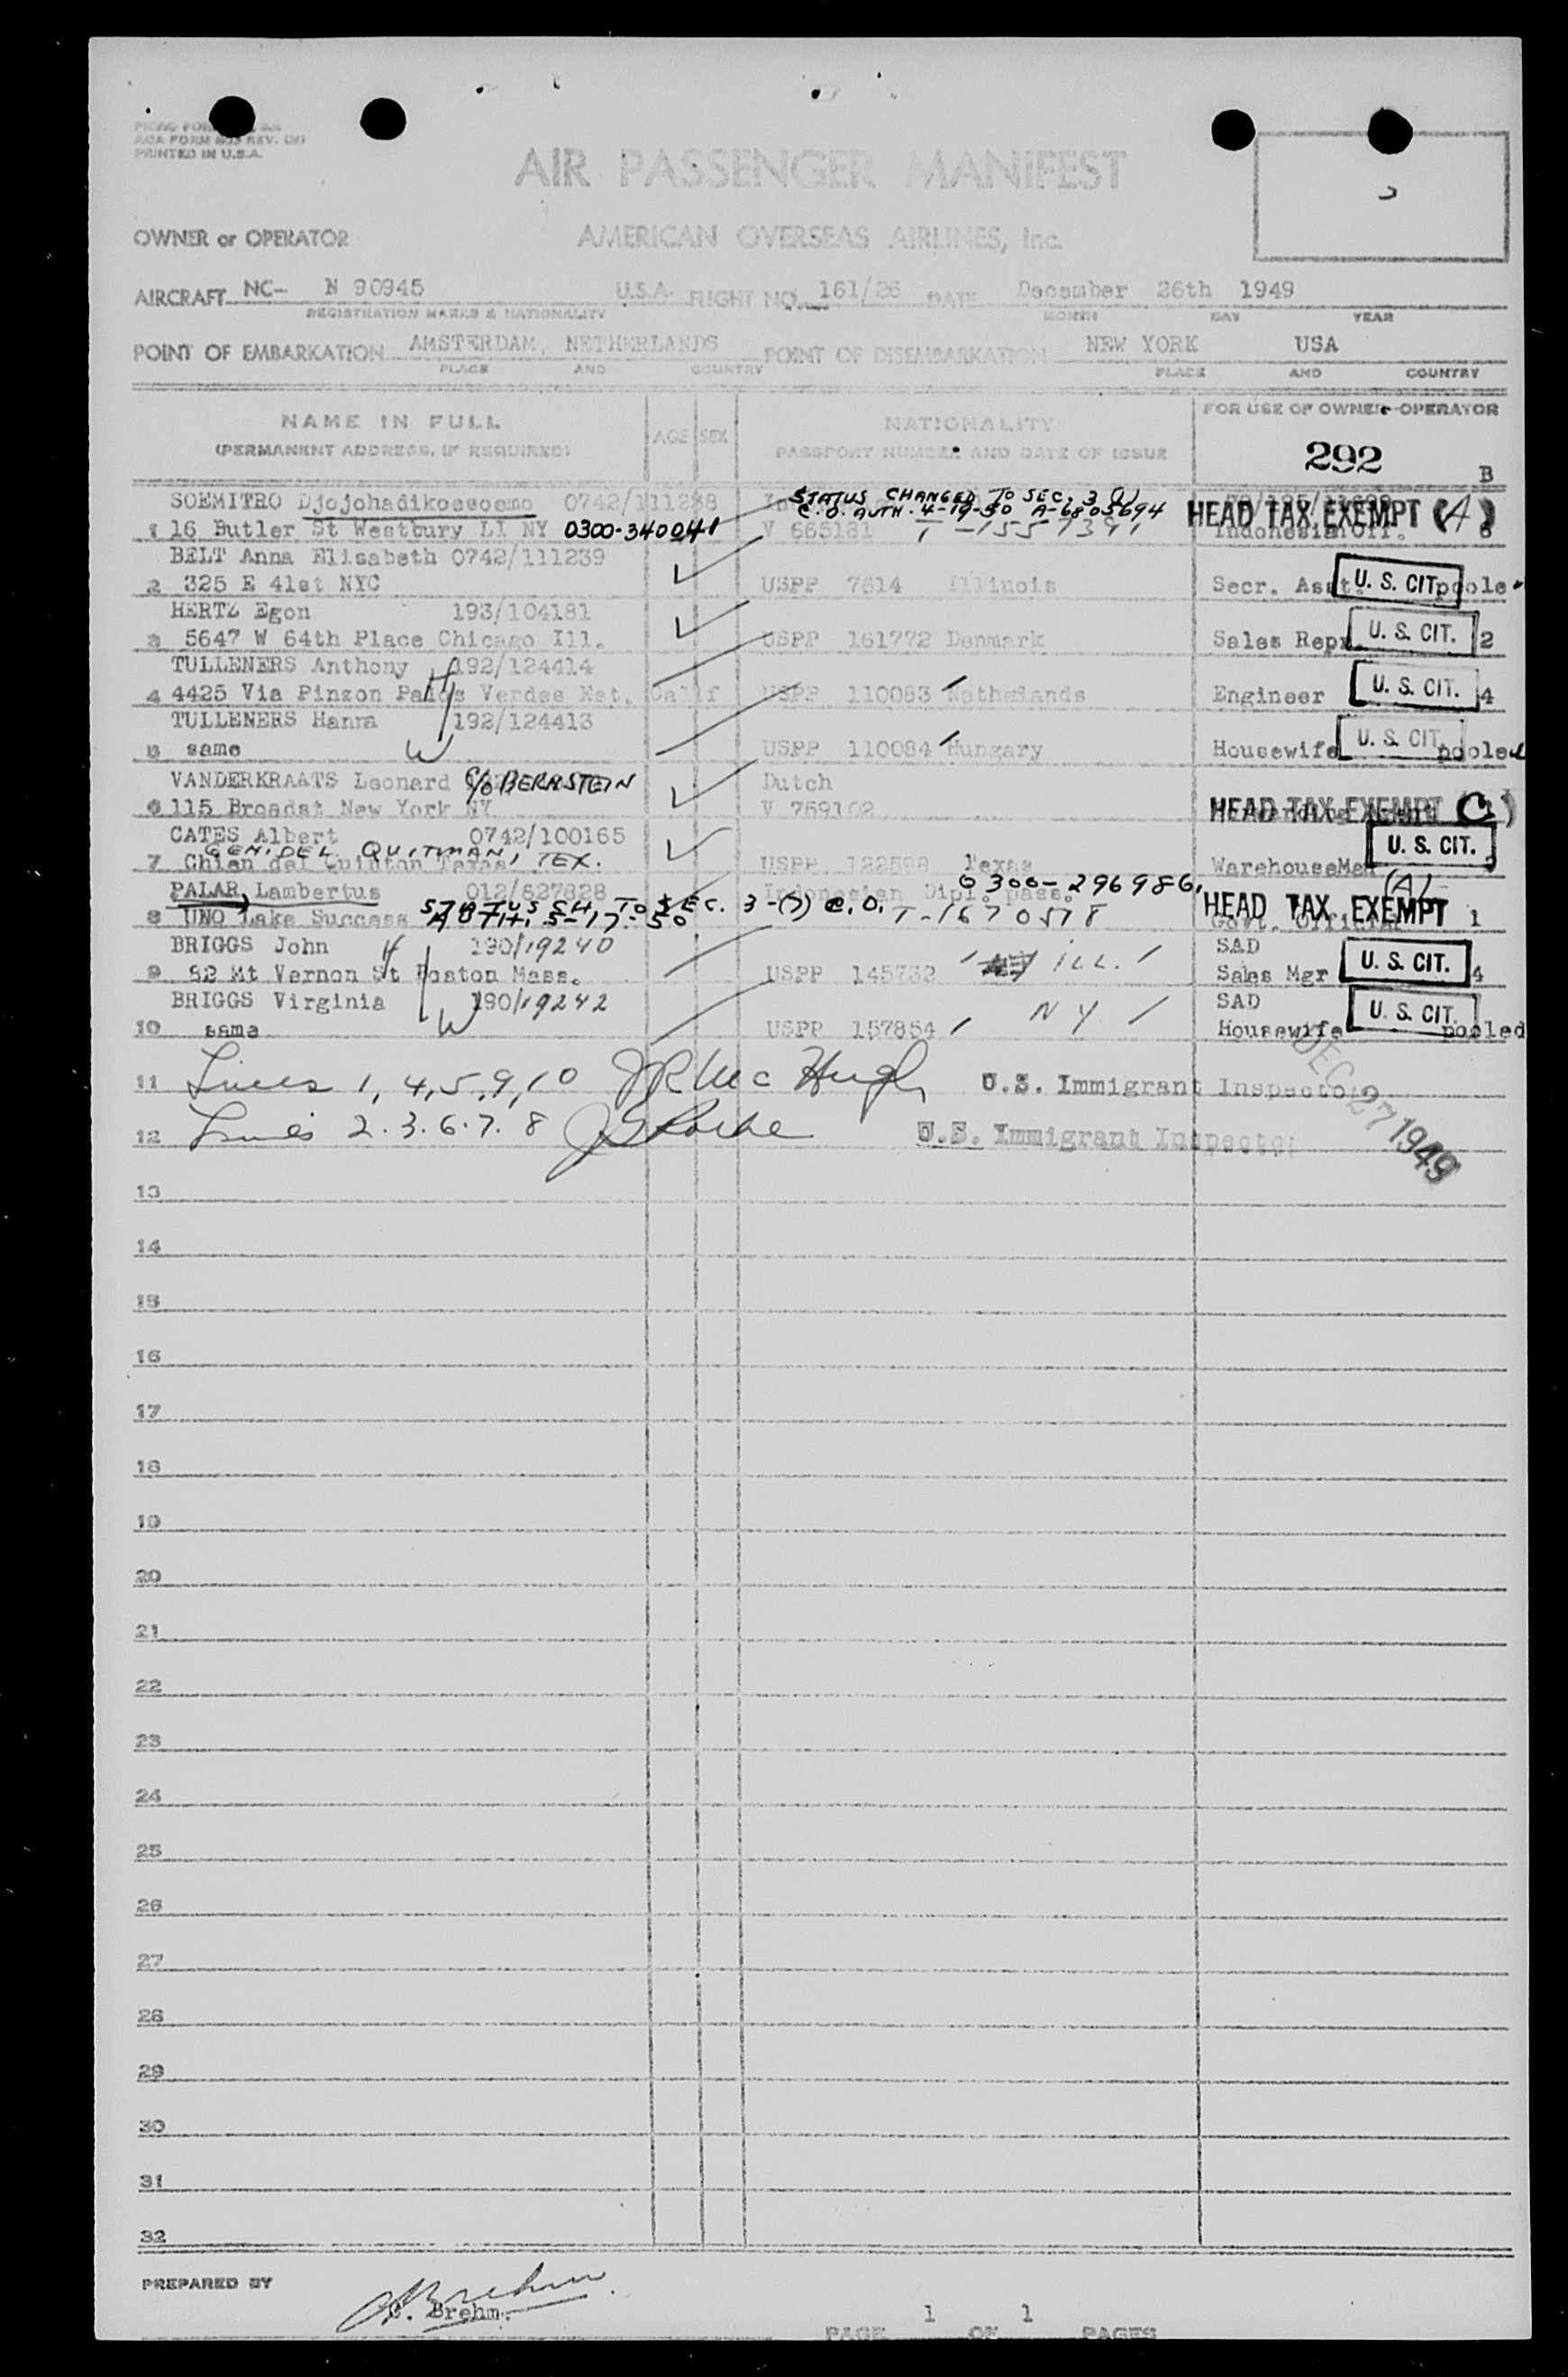 PRINTED IN U.S.A.
AIR PASSENGER MANIFEST
OWNER or OPERATOR AMERICAN OVERSEAS AIRLINES, Inc.
AIRCRAFT NC- N 90945 U.S.A. FLIGHT NO. 161/26 DATE December 26th 1949
REGISTRATION MARKS & NATIONALITY MONTH DAY YEAR
POINT OF EMBARKATION AMSTERDAM, NETHERLANDS POINT OF DISEMBARKATION NEW YORK USA
PLACE AND COUNTRY PLACE AND COUNTRY
NAME IN FULL AGE SEX NATIONALITY FOR USE OF OWNER-OPERATOR
(PERMANENT ADDRESS, IF REQUIRED) PASSPORT NUMBER AND DATE OF ISSUE 292 B
SOEMITRO Djojohadikoesoemo 0742/111238 STATUS CHANGED TO SEC. 3
C.O. AUTH. 4-19-50 A-6805694 HEAD TAX EXEMPT (A)
1 16 Butler St Westbury LI NY 0300-340041 V 665181 T-1557391 Indonesian Off.
BELT Anna Elisabeth 0742/111239
2 325 E 41st NYC USPP 7614 Illinois Secr. Asst. U. S. CIT.
HERTZ Egon 193/104181
3 5647 W 64th Place Chicago Ill. USPP 161772 Denmark Sales Repr. U. S. CIT. 2
TULLENERS Anthony H 192/124414
4 4425 Via Pinzon Palos Verdes Est. Calif USPP 110083 Netherlands Engineer U. S. CIT. 4
TULLENERS Hanna 192/124413
5 same W USPP 110084 Hungary Housewife U. S. CIT. pooled
VANDERKRAATS Leonard C/O BERNSTEIN Dutch
6 115 Broadst New York NY V 759102 HEAD TAX EXEMPT (C)
CATES Albert 0742/100165
GEN. DEL QUITMAN, TEX.
7 USPP 122598 Texas WarehouseMan U. S. CIT.
PALAR, Lambertus 012/627828 Indonesian Dipl. pass. 0300-296986 (A)
8 UNO Lake Success STATUS CH. TO SEC. 3-(7) C.O. T-1670578 HEAD TAX EXEMPT 1
AUTH. 5-17-50 Govt. Official
BRIGGS John H 190/19240 SAD
9 82 Mt Vernon St Boston Mass. USPP 145732 ILL. Sales Mgr U. S. CIT. 4
BRIGGS Virginia 190/19242 SAD
10 same W USPP 157854 NY Housewife U. S. CIT. pooled
11 Lines 1, 4, 5, 9, 10 JR McHugh U.S. Immigrant Inspector
DEC 27 1949
12 Lines 2. 3. 6. 7. 8 U.S. Immigrant Inspector
13
14
15
16
17
18
19
20
21
22
23
24
25
26
27
28
29
30
31
32
PREPARED BY C. Brehm.
PAGE 1 OF 1 PAGES